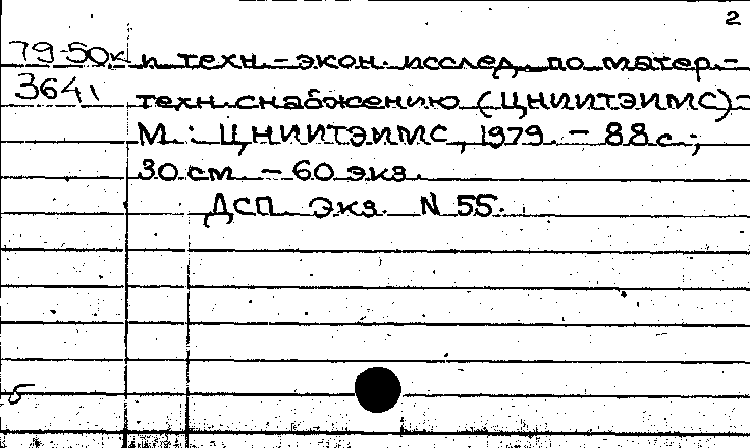 2
79-50к и техн.-экон. исслед. по матер.-
3641 техн. снабжению (ЦНИИТЭИМС)-
М.: ЦНИИТЭИМС, 1979. - 88 с.;
30 см. - 60 экз.
ДСП. Экз. N 55.
б